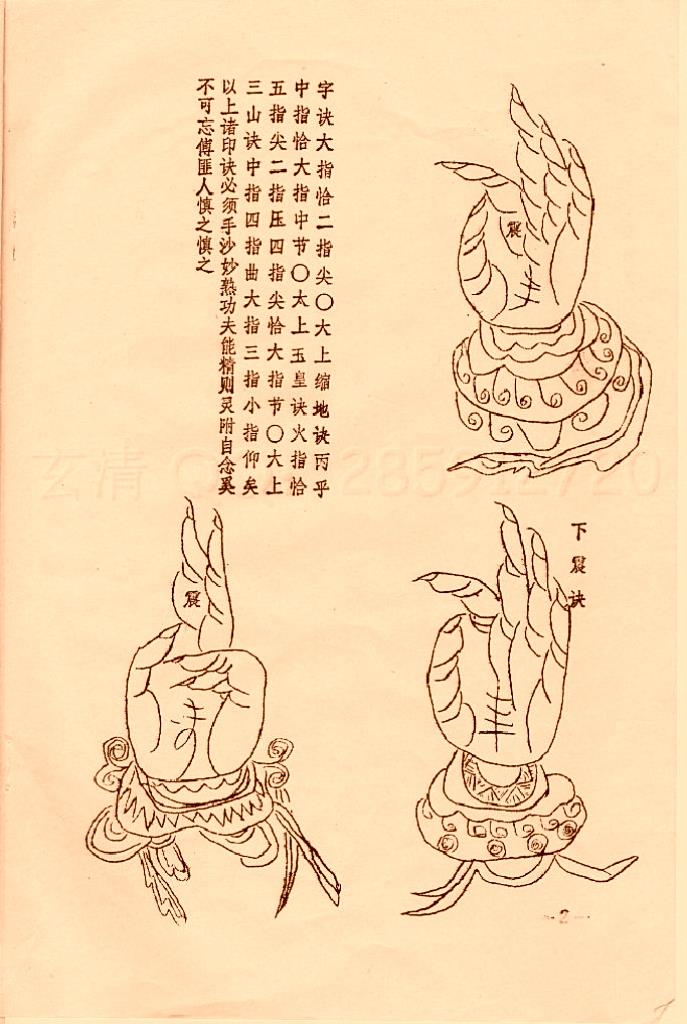 字诀大指恰二指尖〇大上缩地诀丙乎
中指恰大指中节〇太上玉皇诀火指恰
五指尖二指压四指尖恰大指节〇大上
三山诀中指四指曲大指三指小指仰矣
以上诸印诀必须手沙妙熟功夫能精则灵附自念奚
不可忘傅匪人慎之慎之
震
下震诀
震
玄清
-2-